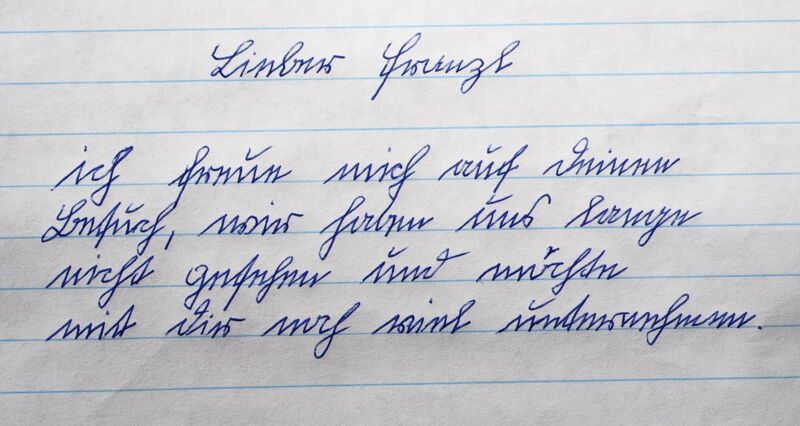 Lieber Franzl
ich freue mich auf deinen
Besuch, wir haben uns lange
nicht gesehen und möchte
mit dir noch viel unternehmen.